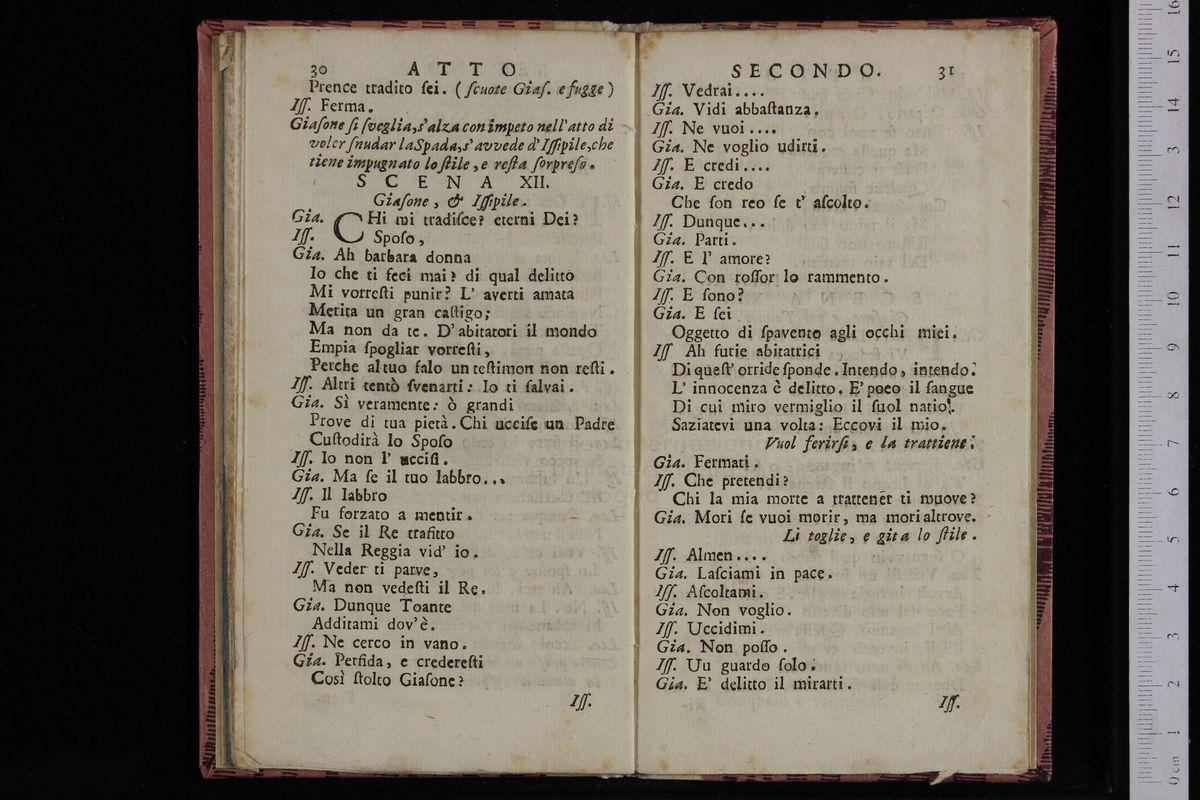 30 ATTO
Prence tradito ſei. (ſcuote Giaſ. e fugge)
Iſſ. Ferma.
Giaſone ſi ſveglia, s'alza con impeto nell'atto di
voler ſnudar la Spada, s'avvede d'Iſſipile, che
tiene impugnato lo ſtile, e reſta ſorpreſo.
SCENA XII.
Giaſone, & Iſſipile.
Gia. CHi mi tradiſce? eterni Dei?
Iſſ. Spoſo,
Gia. Ah barbara donna
Io che ti feci mai? di qual delitto
Mi vorreſti punir? L' averti amata
Merita un gran caſtigo;
Ma non da te. D'abitatori il mondo
Empia ſpogliar vorreſti,
Perche al tuo falo un teſtimon non reſti.
Iſſ. Altri tentò ſvenarti: Io ti ſalvai.
Gia. Sì veramente: ò grandi
Prove di tua pietà. Chi ucciſe un Padre
Cuſtodirà lo Spoſo
Iſſ. Io non l' ucciſi.
Gia. Ma ſe il tuo labbro...
Iſſ. Il labbro
Fu forzato a mentir.
Gia. Se il Re trafitto
Nella Reggia vid' io.
Iſſ. Veder ti parve,
Ma non vedeſti il Re.
Gia. Dunque Toante
Additami dov'è.
Iſſ. Ne cerco in vano.
Gia. Perfida, e credereſti
Così ſtolto Giaſone?
Iſſ.
SECONDO. 31
Iſſ. Vedrai....
Gia. Vidi abbaſtanza.
Iſſ. Ne vuoi....
Gia. Ne voglio udirti.
Iſſ. E credi....
Gia. E credo
Che ſon reo ſe t' aſcolto.
Iſſ. Dunque...
Gia. Parti.
Iſſ. E l' amore?
Gia. Con roſſor lo rammento.
Iſſ. E ſono?
Gia. E ſei
Oggetto di ſpavento agli occhi miei.
Iſſ Ah furie abitatrici
Di queſt' orride ſponde. Intendo, intendo.
L' innocenza è delitto. E' poco il ſangue
Di cui miro vermiglio il ſuol natio!.
Saziatevi una volta: Eccovi il mio.
Vuol ferirſi, e la trattiene.
Gia. Fermati.
Iſſ. Che pretendi?
Chi la mia morte a trattener ti muove?
Gia. Mori ſe vuoi morir, ma mori altrove.
Li toglie, e gita lo ſtile.
Iſſ. Almen....
Gia. Laſciami in pace.
Iſſ. Aſcoltami.
Gia. Non voglio.
Iſſ. Uccidimi.
Gia. Non poſſo.
Iſſ. Uu guardo ſolo.
Gia. E' delitto il mirarti.
Iſſ.
0 cm 1 2 3 4 5 6 7 8 9 10 11 12 13 14 15 16